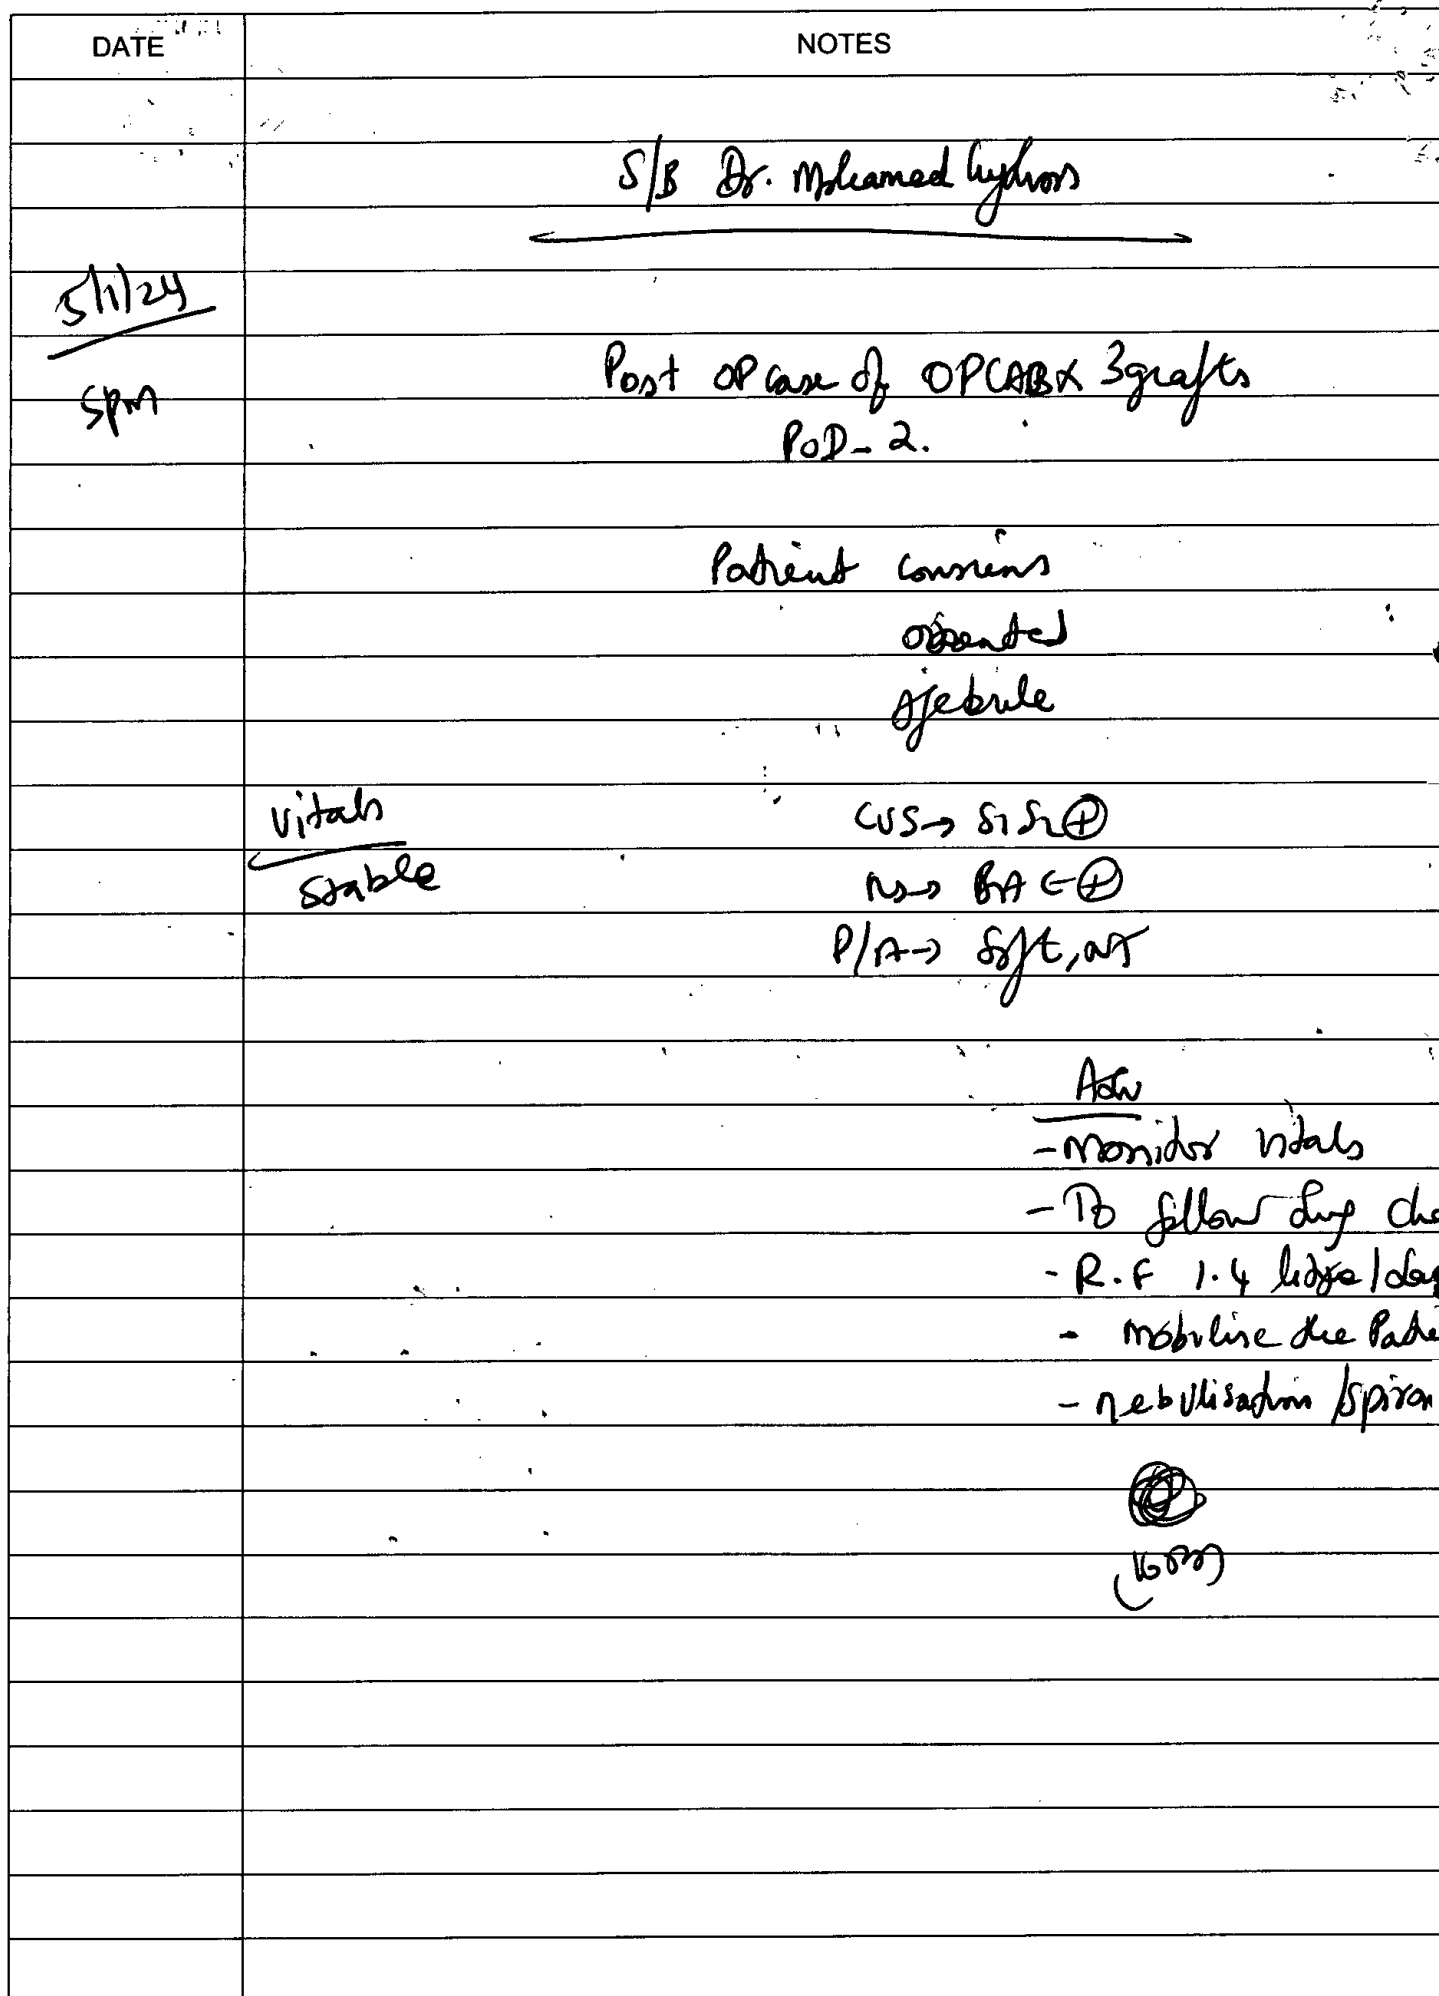 DATE NOTES
S/B Dr. Mohamed
5/1/24
Post OP case of OPCAB x 3 grafts
5pm
POD - 2.
Patient conscious
oriented
Afebrile
Vitals CVS → S1 S2 ⊕
Stable RS → BAE ⊕
P/A → Soft, NT
Adv
- Monitor vitals
- To follow drug
- R.F 1.4 litre/day
- mobilise the
- nebulisation /